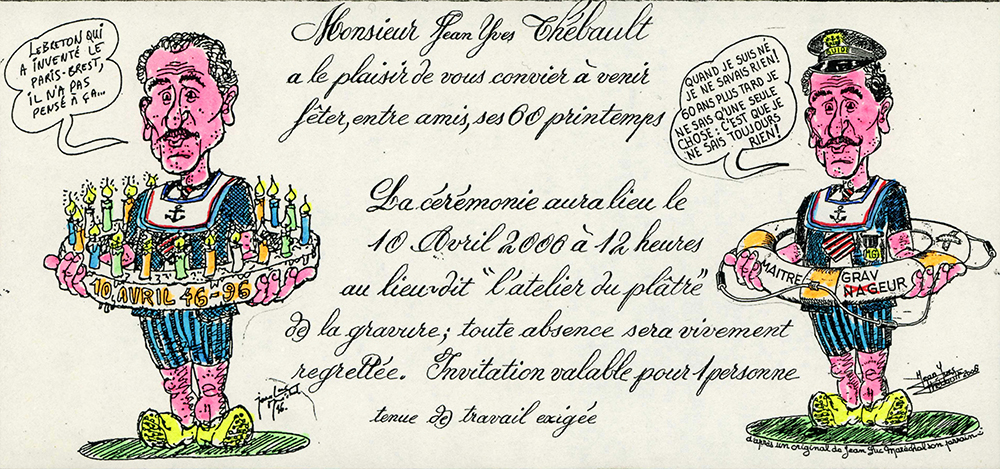 LEBRETON QUI
A INVENTÉ LE
PARIS-BREST,
IL N'A PAS
PENSÉ À ÇA...
10 AVRIL 46-96
Monsieur Jean Yves Thébault
a le plaisir de vous convier à venir
fêter, entre amis, ses 60 printemps
La cérémonie aura lieu le
10 Avril 2006 à 12 heures
au lieu-dit "l'atelier du plâtre"
de la gravure; toute absence sera vivement
regrettée. Invitation valable pour 1 personne
tenue de travail exigée
GUIDE
QUAND JE SUIS NÉ
JE NE SAVAIS RIEN!
60 ANS PLUS TARD JE
NE SAIS QU'UNE SEULE
CHOSE: C'EST QUE JE
NE SAIS TOUJOURS
RIEN!
MAITRE GRAV
NAGEUR
d'après un original de Jean Luc Maréchal son parrain